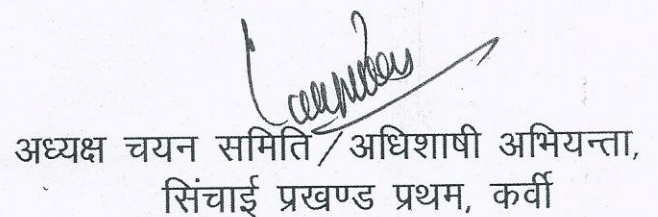 अध्यक्ष चयन समिति/अधिशाषी अभियन्ता,
सिंचाई प्रखण्ड प्रथम, कर्वी